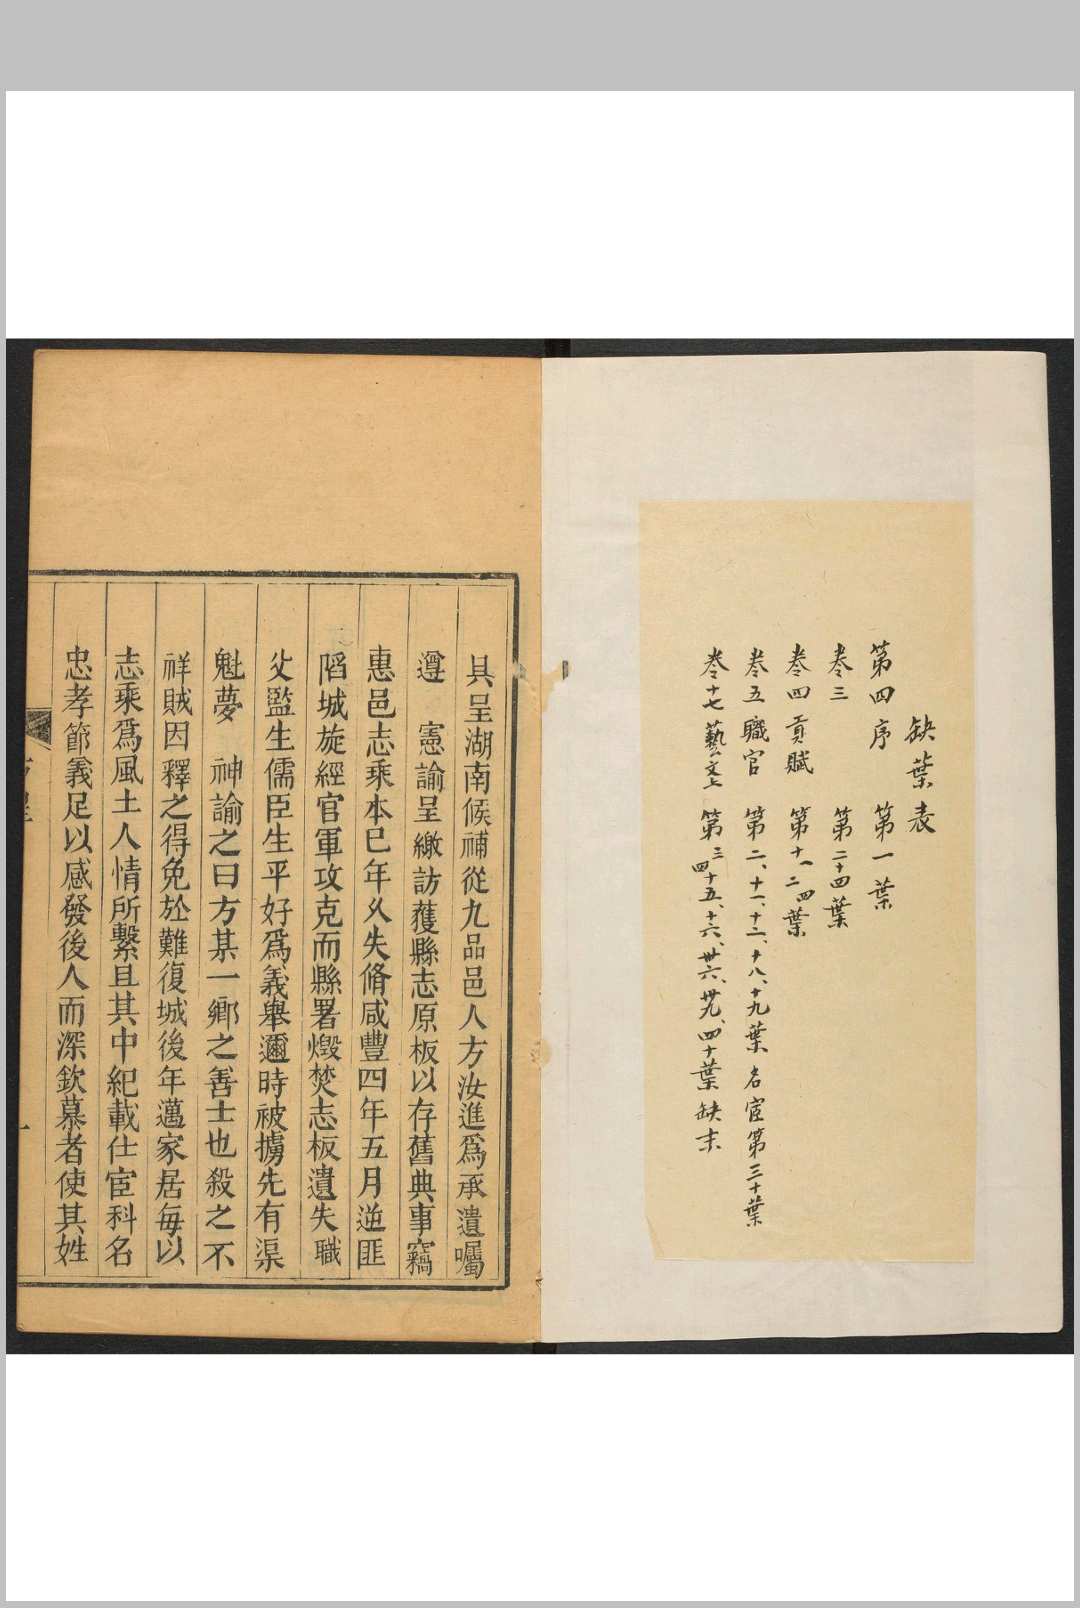 缺葉表
第四序 第一葉
卷三 第二十四葉
卷四貢賦 第十一、二、四葉
卷五職官 第二、十一、十二、十八、十九葉 名宦第三十葉
卷十七藝文上 第三、四十五、十六、卅六、卅九、四十葉缺末
具呈湖南候補從九品邑人方汝進爲承遺囑
遵 憲諭呈繳訪獲縣志原板以存舊典事竊
惠邑志乘本巳年久失脩咸豐四年五月逆匪
陷城旋經官軍攻克而縣署燬焚志板遺失職
父監生儒臣生平好爲義舉邇時被擄先有渠
魁夢 神諭之曰方某一鄉之善士也殺之不
祥賊因釋之得免於難復城後年邁家居每以
志乘爲風土人情所繫且其中紀載仕宦科名
忠孝節義足以感發後人而深欽慕者使其姓